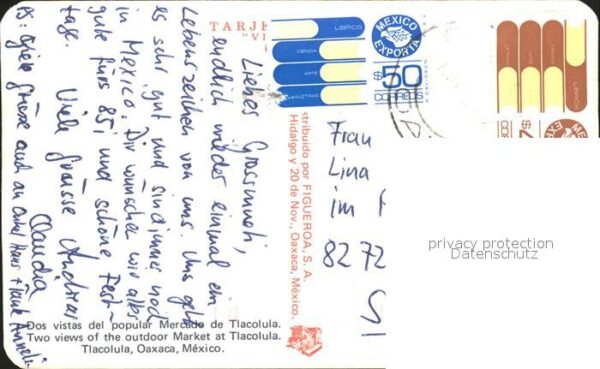 TARJE
"VI
Liebes Grossmueti,
endlich wieder einmal ein
Lebenszeichen von uns. Uns geht
es sehr gut und sind immer noch
in Mexico. Dir wünschen wir alles
gute fürs 85i und schöne Fest-
tage. Viele Grüsse Andreas
Claudia
PS. Viele Grüsse auch an Onkel Hans + Tante Anneli
Dos vistas del popular Mercado de Tlacolula.
Two views of the outdoor Market at Tlacolula.
Tlacolula, Oaxaca, México.
stribuido por FIGUEROA, S. A.
Hidalgo y 20 de Nov., Oaxaca, México.
LIBROS
CIENCIA
ARTE
MEXICO
EXPORTA
$50
CORREOS
LIBROS
MEXICO
EXPO
Frau
Lina
im
8272
privacy protection
Datenschutz